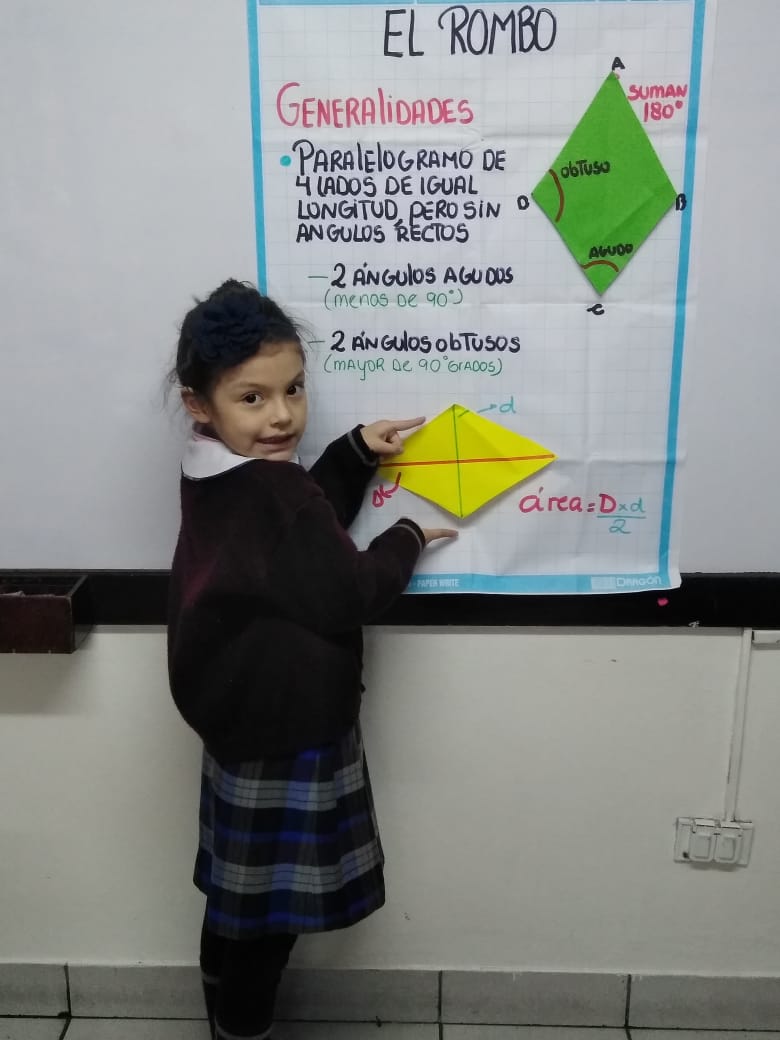 EL ROMBO
GENERALIDADES
• PARALELOGRAMO DE
4 LADOS DE IGUAL
LONGITUD, PERO SIN
ÁNGULOS RECTOS
- 2 ÁNGULOS AGUDOS
(MENOS DE 90°)
- 2 ÁNGULOS OBTUSOS
(MAYOR DE 90° GRADOS)
A
SUMAN
180°
OBTUSO
D
B
AGUDO
C
d
D
área = D x d
2
- PAPER WRITE
DRAGÓN